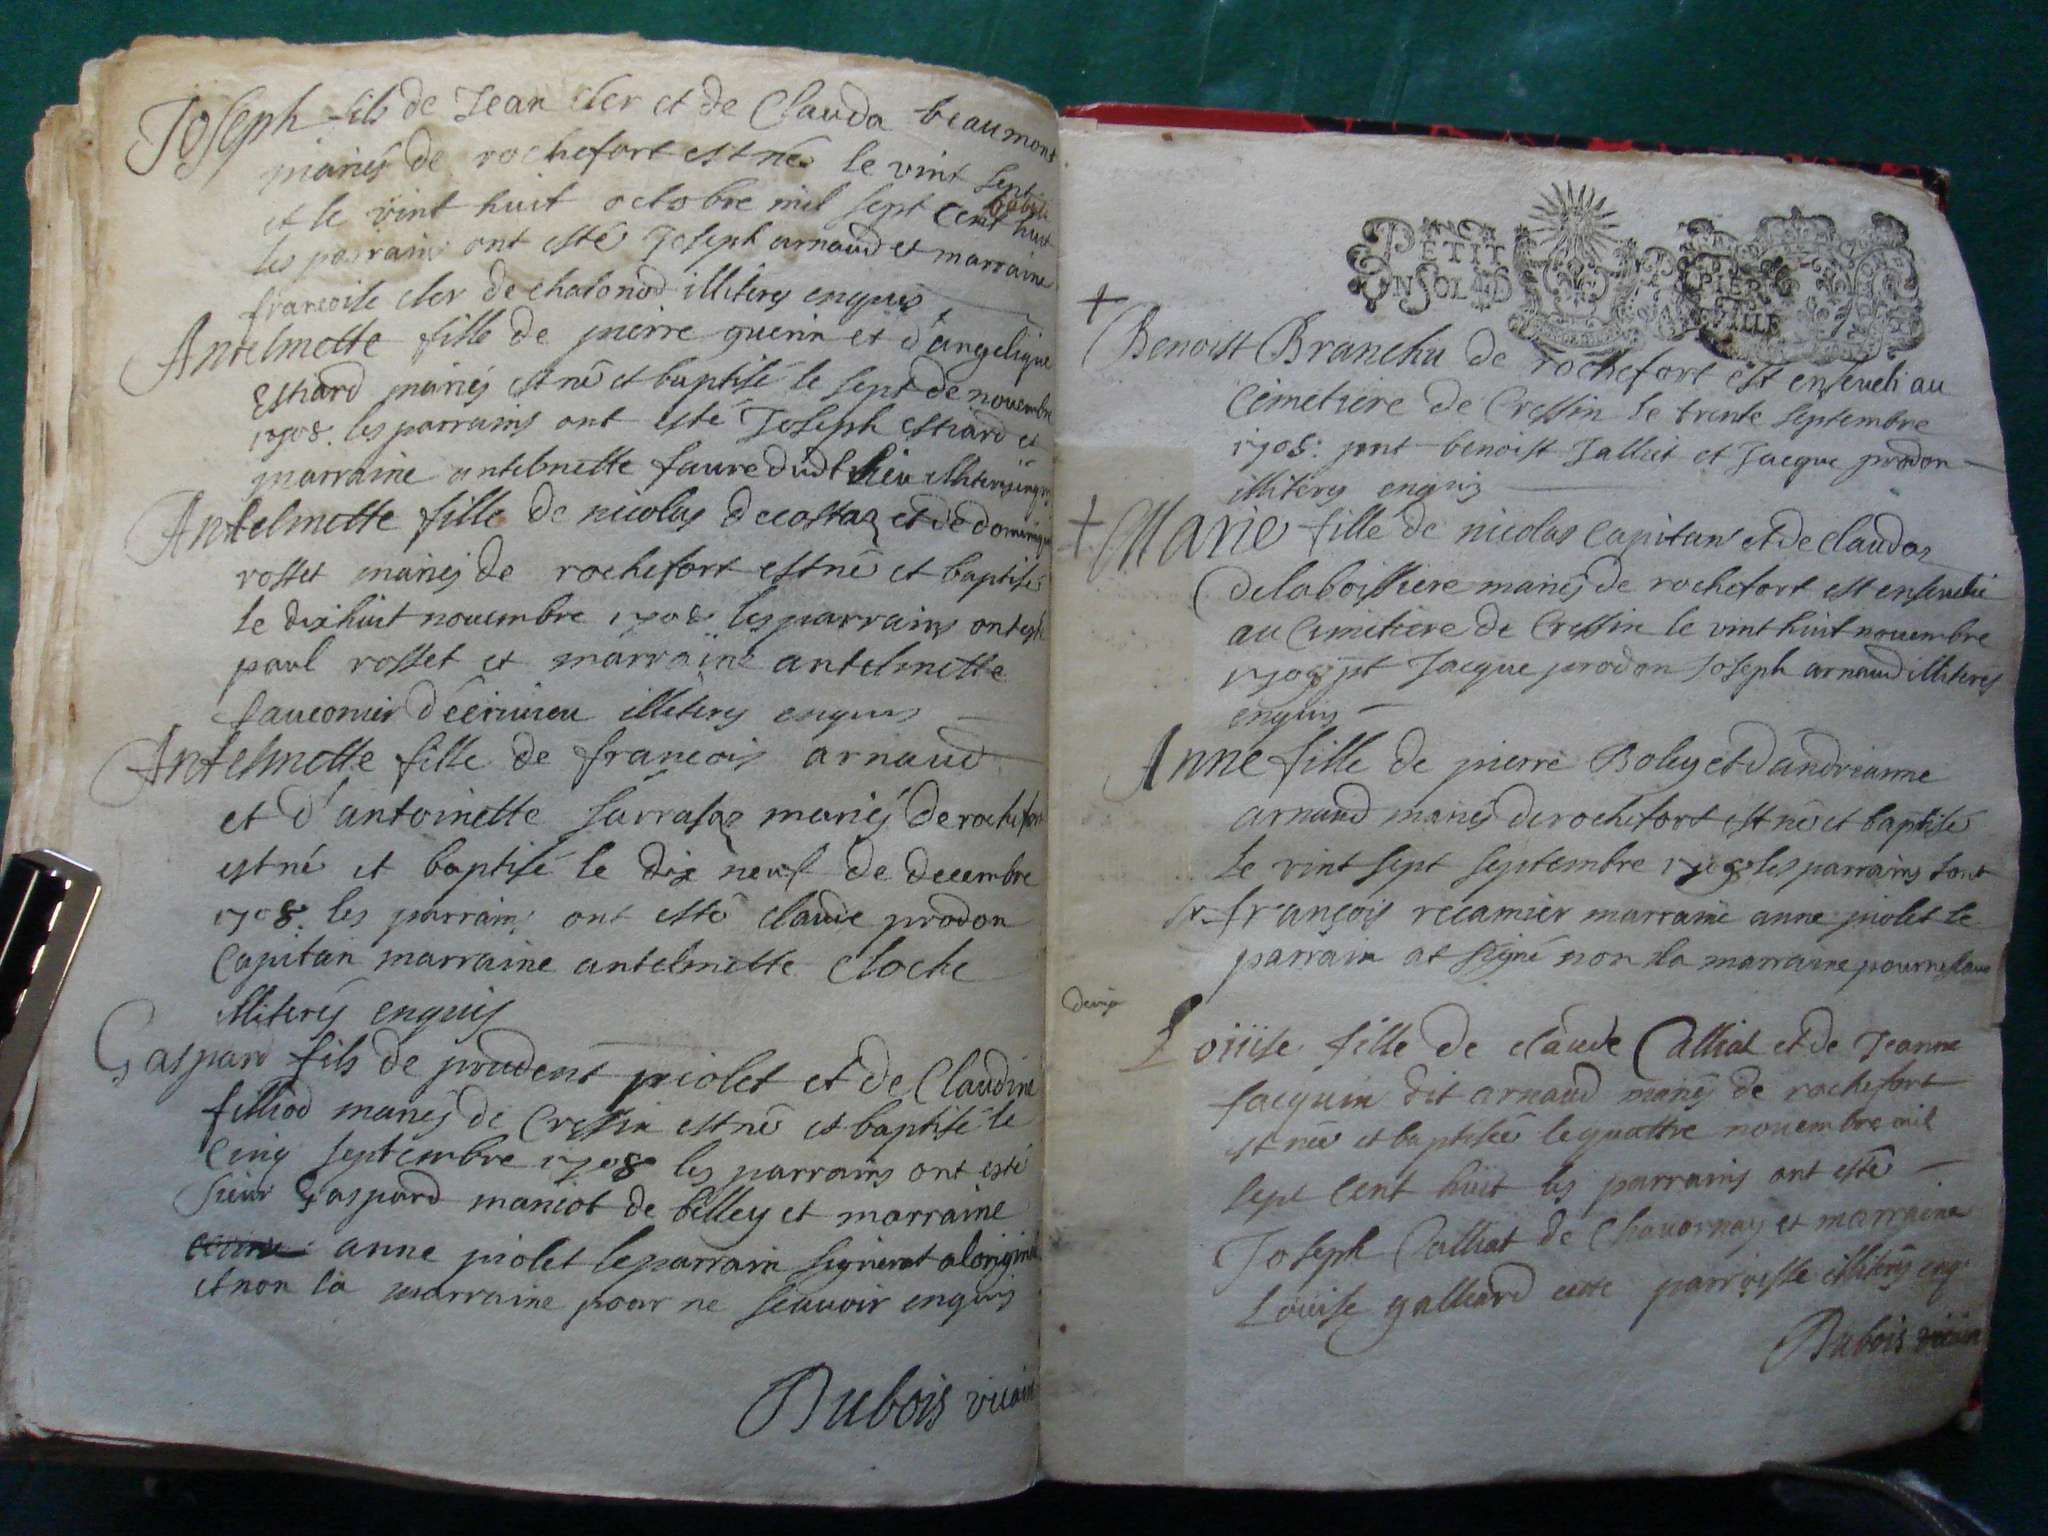 Joseph fils de Jean cler et de Clauda beaumont
mariés de rochefort est né le vint sept
et le vint huit octobre mil sept cent huit
baptisé
les parrains ont esté Joseph arnaud et marraine
francoise cler de chalonod illiterés enquis
Antelmette fille de pierre guerin et d'angelique
Estiard mariés est né et baptisé le sept de novembre
1708. les parrains ont esté Joseph estiard et
marraine antelmette faure dudt lieu illiterés enquis
Antelmette fille de nicolas decostaz et de dominique
rosset mariés de rochefort est né et baptisé
le dix huit novembre 1708 les parrains ont esté
paul rosset et marraine antelmette
fauconier illiterés enquis
Antelmette fille de francois arnaud
et d'antoinette sarrasaz mariés de rochefort
est né et baptisé le dix neuf de decembre
1708. les parrains ont esté claude prodon
Capitan marraine antelmette cloche
illiterés enquis
Gaspard fils de prudent piolet et de Claudine
filliod mariés de Cressin est né et baptisé le
cinq septembre 1708 les parrains ont esté
sieur Gaspard maniot de belley et marraine
anne piolet le parrain signerat a loriginal
et non la marraine pour ne scavoir enquis
Dubois vicaire
PETIT
ON SOLD
+
Benoist Branchu de rochefort est enseveli au
Cimetiere de Cressin le trente septembre
1708. pnt benoist Jallut et Jacque prodon
illiterés enquis
+ Marie fille de nicolas Capitan et de claudaz
delaboissiere mariés de rochefort est ensevelie
au Cimetiere de Cressin le vint huit novembre
1708 pt Jacque prodon Joseph arnaud illiterés
enquis
Anne fille de pierre Boley et d'andrianne
arnaud mariés de rochefort est né et baptisé
le vint sept septembre 1708 les parrains sont
Sr françois recamier marraine anne piolet le
parrain at signé non la marraine pour ne scavoir
Loüise fille de claude Calliat et de Jeanne
Jacquin dit arnaud mariés de rochefort
est née et baptisée le quattre novembre mil
sept cent huit les parrains ont esté
Joseph Calliat de Chavornay et marraine
Loüise galliard parroisse illiterés enq.
Dubois vicaire